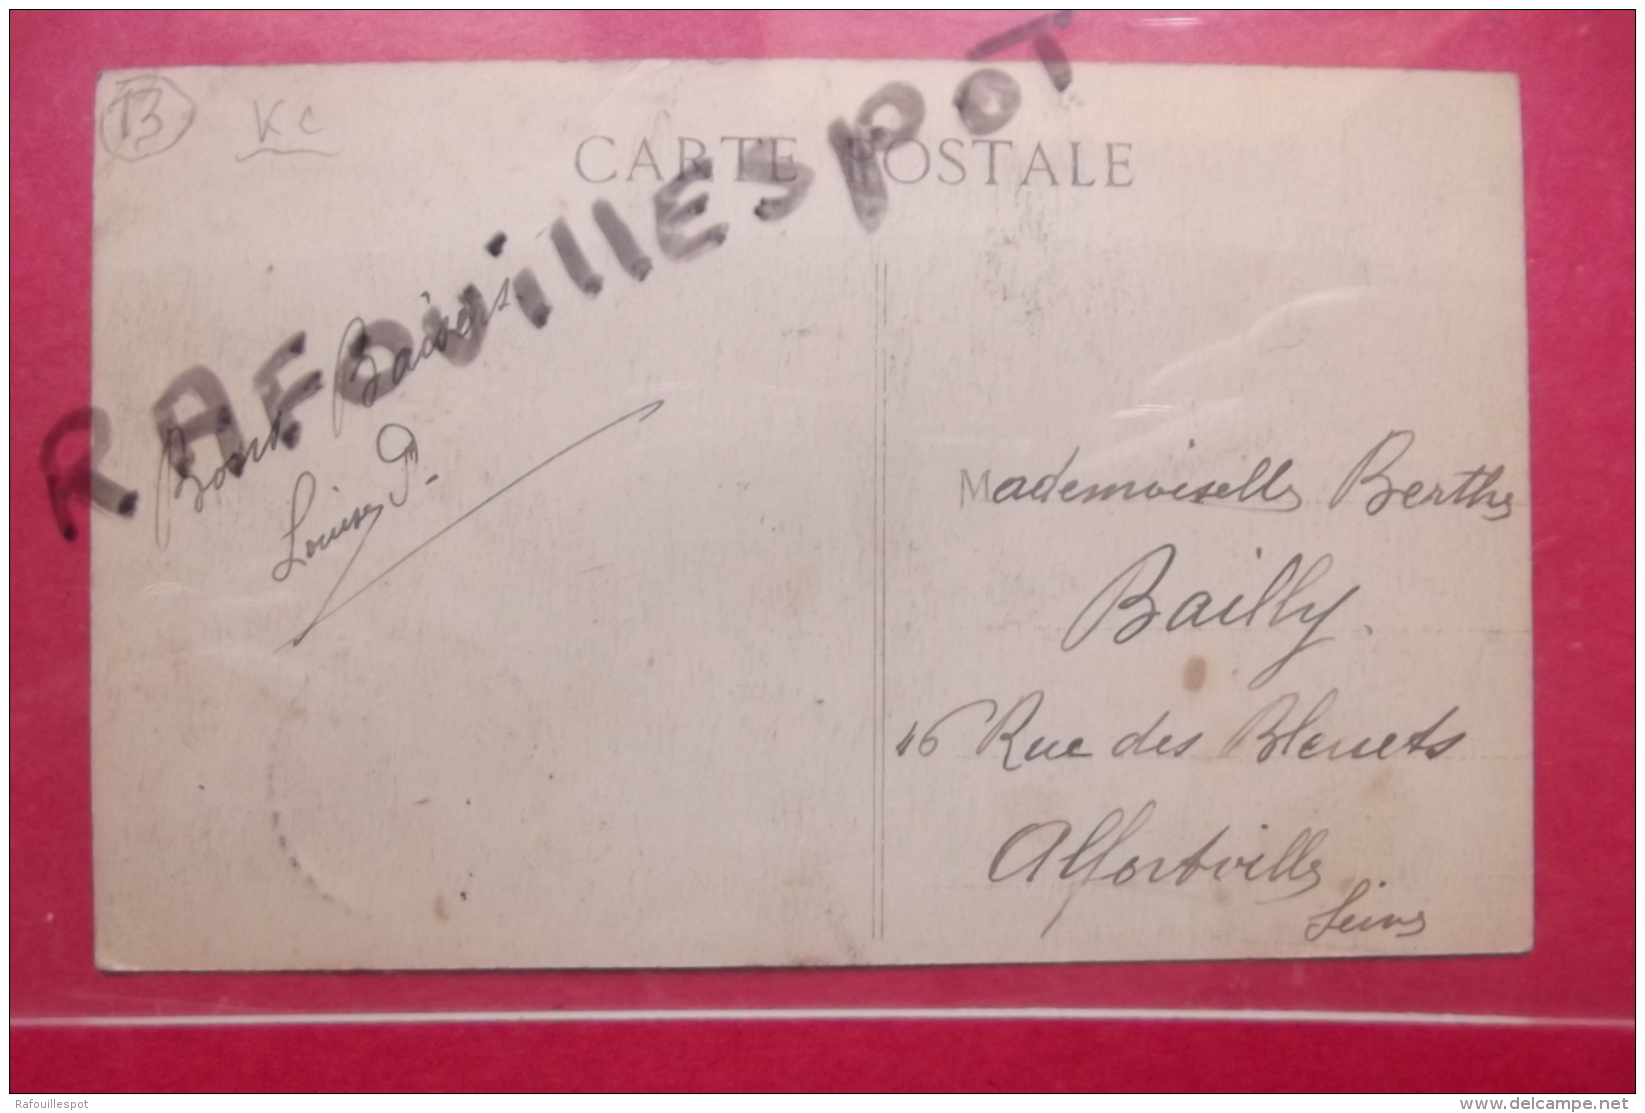 13 KC
CARTE POSTALE
RAFOUILLESPOT
Bons Baisers.
Louise P.
Mademoiselle Berthe
Bailly.
16 Rue des Bleuets
Alfortville
Seine
Rafouillespot
www.delcampe.net